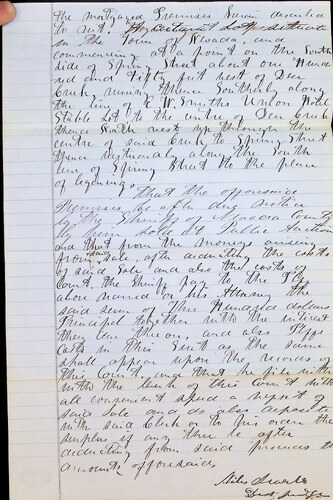 the mortgaged Premises herein described
to wit. situate
in the Town of Nevada, and
commencing at a point on the South
side of Spring Street about one Hund
red and Fifty feet West of Deer
Creek running thence Southerly along
the line of K. W. Smiths Union Hotel
Stable Lot to the centre of Deer Creek
thence North west up through the
centre of said Creek to Spring Street
thence along the South
line of Spring Street to the place
of beginning. That the aforesaid
Premises be after due notice
by the Sheriff of Nevada County
by him sold at Public Auction
and that from the moneys arising
from said Sale, after deducting the costs
of said Sale and also the costs of
Court, the Sheriff pay to the Plff
above named or his Attorney the
said sum of Five Hundred dollars
Principal together with the interest
then due thereon, and also Plffs
costs in This Suit as the same
shall appear upon the records of
this Court and that he file with
with the clerk of this Court with
all convenient speed a report of
said Sale and do also deposite
with said Clerk or to his order the
surplus if any there be after
deducting from said proceeds the
amounts aforesaid
Niles Searls
Dist Judge